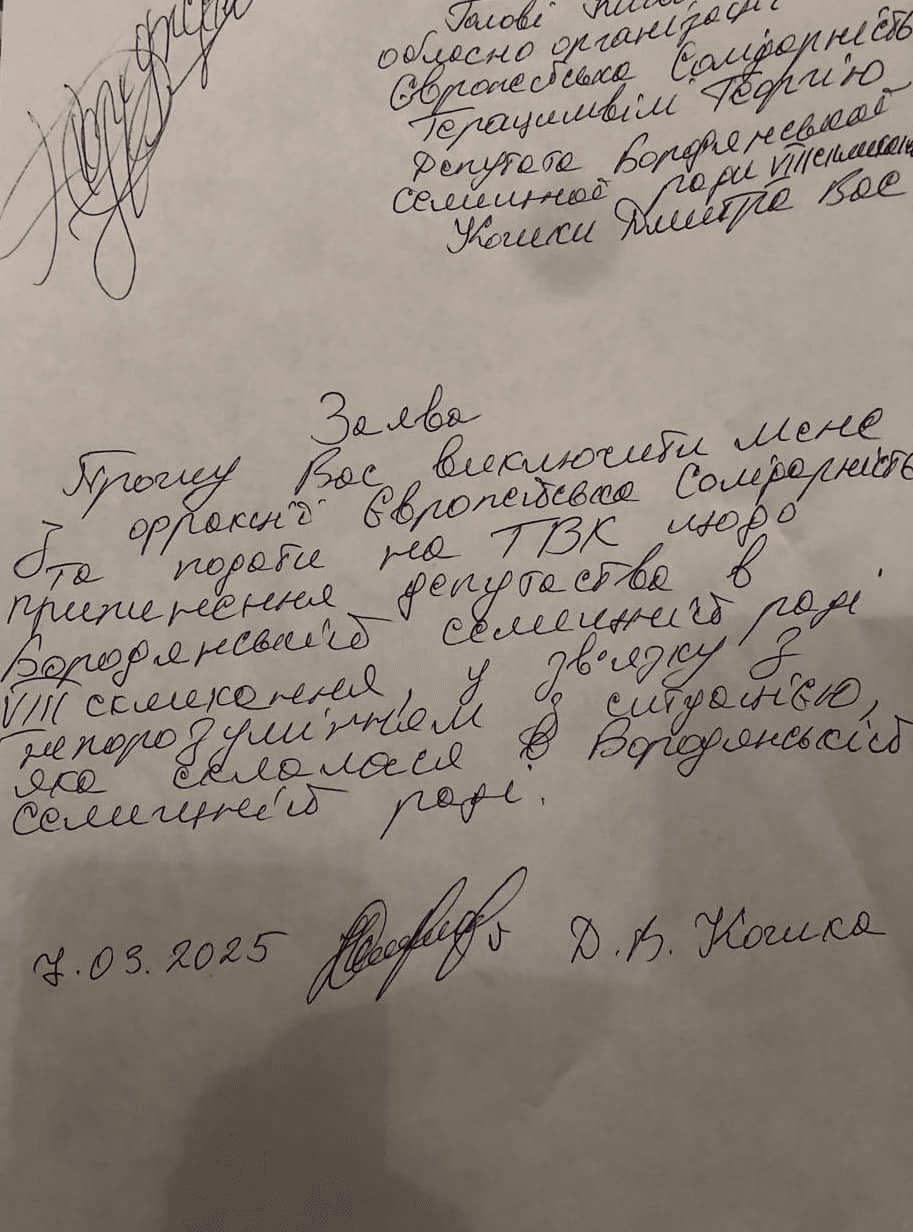 Голові
обласно організації
Європейська Солідарність
Георгію
Депутата Бородянської
селищної ради VIII скликан
Кошки Дмитра Вас
Заява
Прошу Вас виключити мене
з фракції Європейська Солідарність
та подати на ТВК щодо
припинення депутаства в
Бородянській селищній раді
VIII скликання, у зв'язку з
непорозумінням з ситуацією,
яка склалася в Бородянській
селищній раді.
7.03.2025 Д.В. Кошка